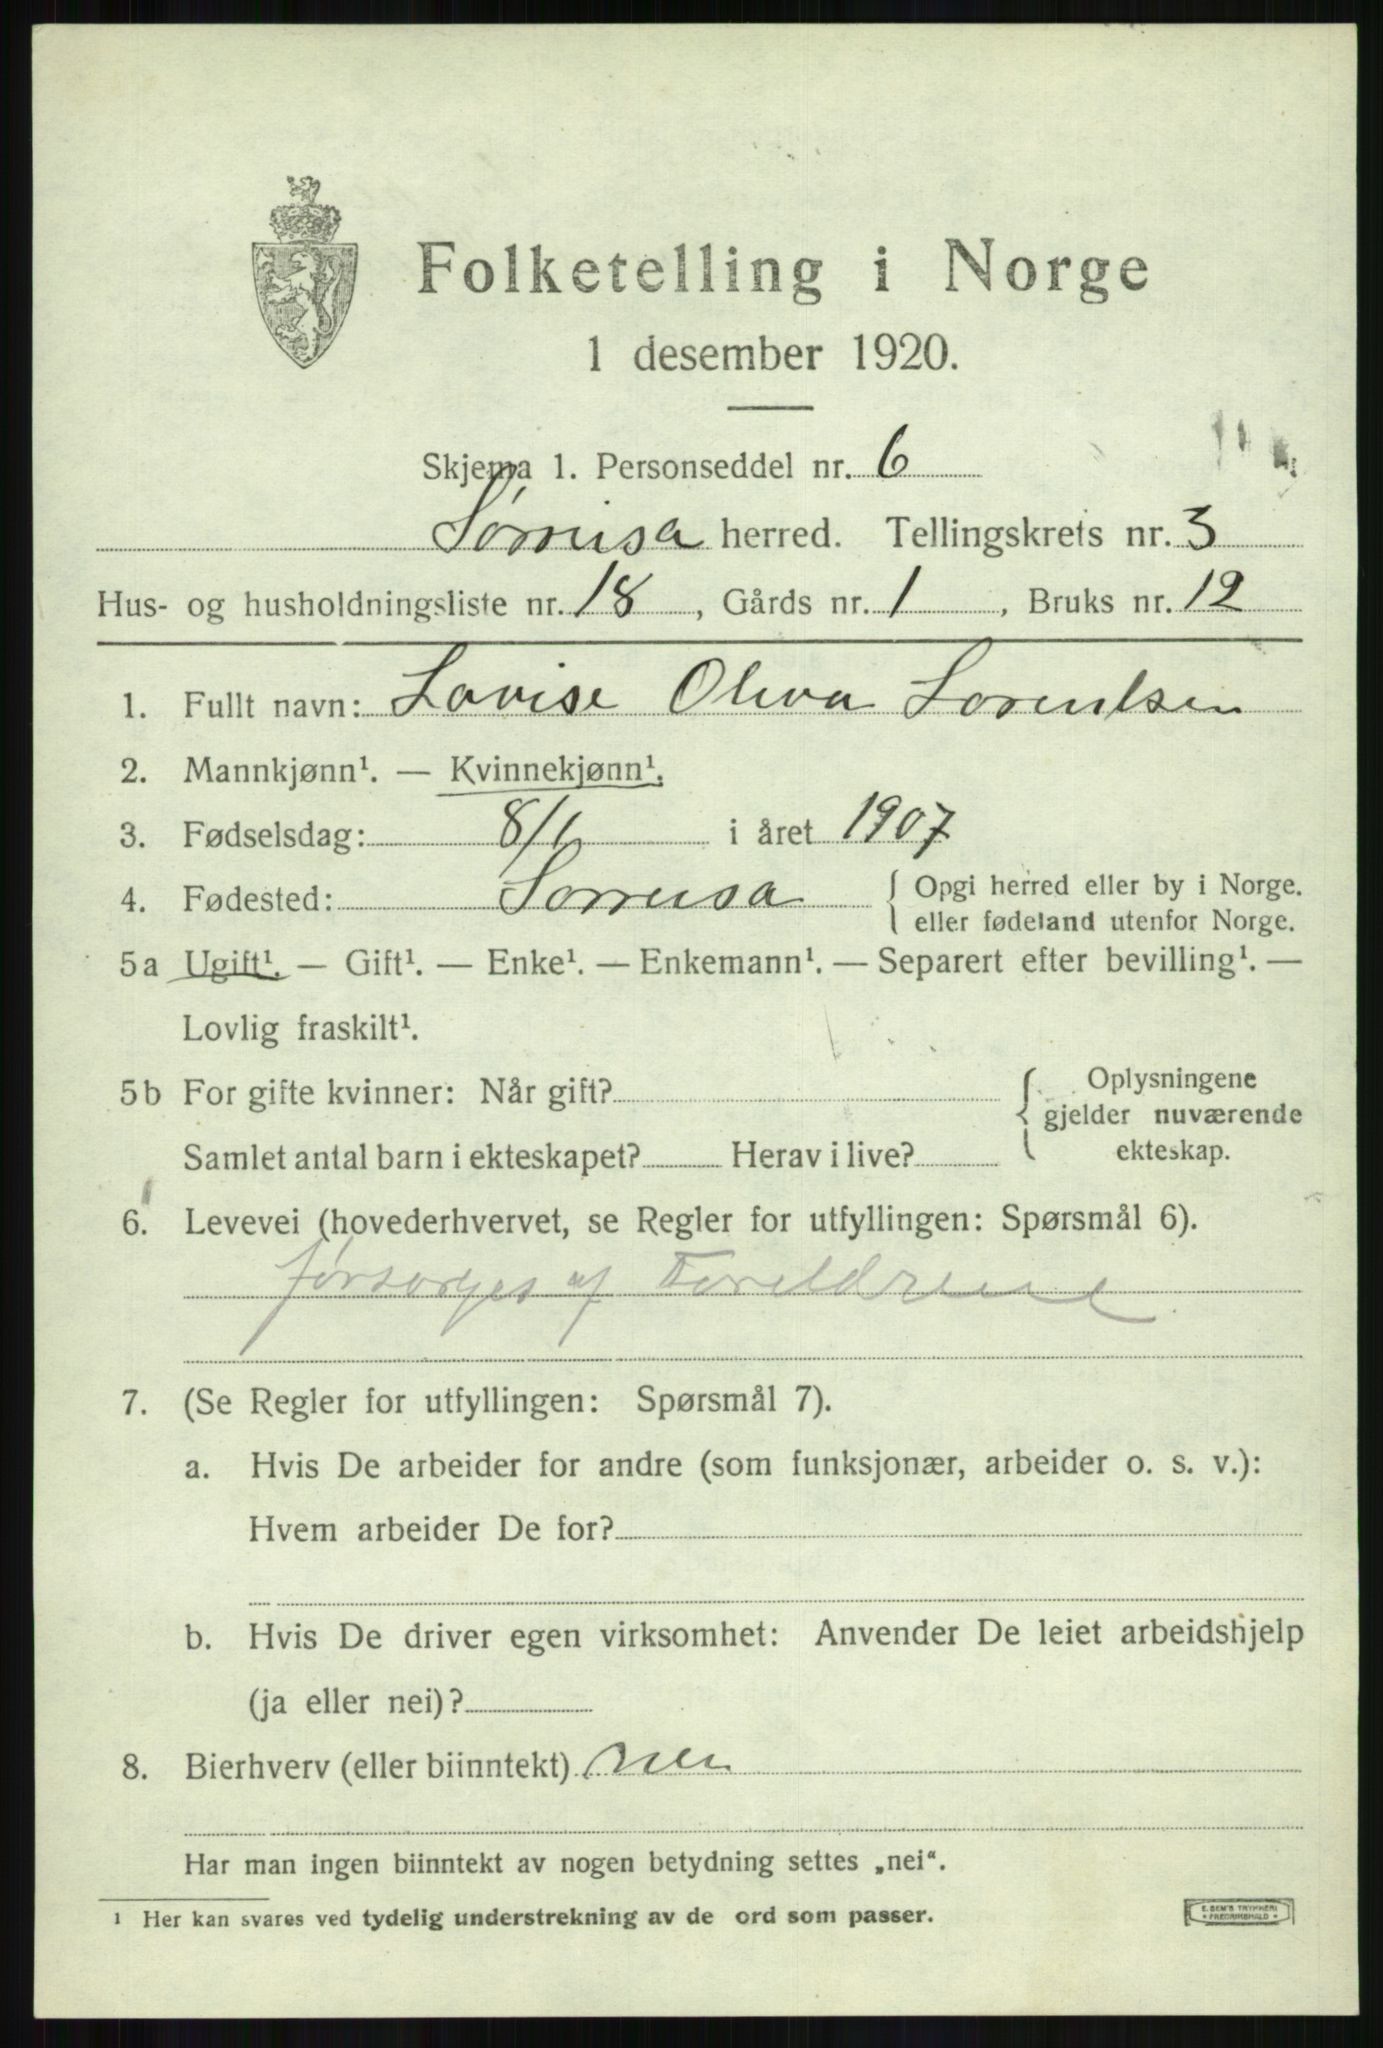 Folketelling i Norge
1 desember 1920.
Skjema 1. Personseddel nr. 6
Sørreisa herred. Tellingskrets nr. 3
Hus- og husholdningsliste nr. 18, Gårds nr. 1, Bruks nr. 12
1. Fullt navn: Lovise Oliva Lorentsen
2. Mannkjønn¹. — Kvinnekjønn¹.
3. Fødselsdag: 8/6 i året 1907
4. Fødested: Sørreisa { Opgi herred eller by i Norge.
eller fødeland utenfor Norge.
5a Ugift¹. — Gift¹. — Enke¹. — Enkemann¹. — Separert efter bevilling¹. —
Lovlig fraskilt¹.
5b For gifte kvinner: Når gift?
Samlet antal barn i ekteskapet? Herav i live?
Oplysningene
gjelder nuværende
ekteskap.
6. Levevei (hovederhvervet, se Regler for utfyllingen: Spørsmål 6).
forsorges af Foreldrene
7. (Se Regler for utfyllingen: Spørsmål 7).
a. Hvis De arbeider for andre (som funksjonær, arbeider o. s. v.):
Hvem arbeider De for?
b. Hvis De driver egen virksomhet: Anvender De leiet arbeidshjelp
(ja eller nei)?
8. Bierhverv (eller biinntekt) nei
Har man ingen biinntekt av nogen betydning settes „nei“.
¹ Her kan svares ved tydelig understrekning av de ord som passer.
E. SEM'S TRYKKERI
FREDRIKSHALD